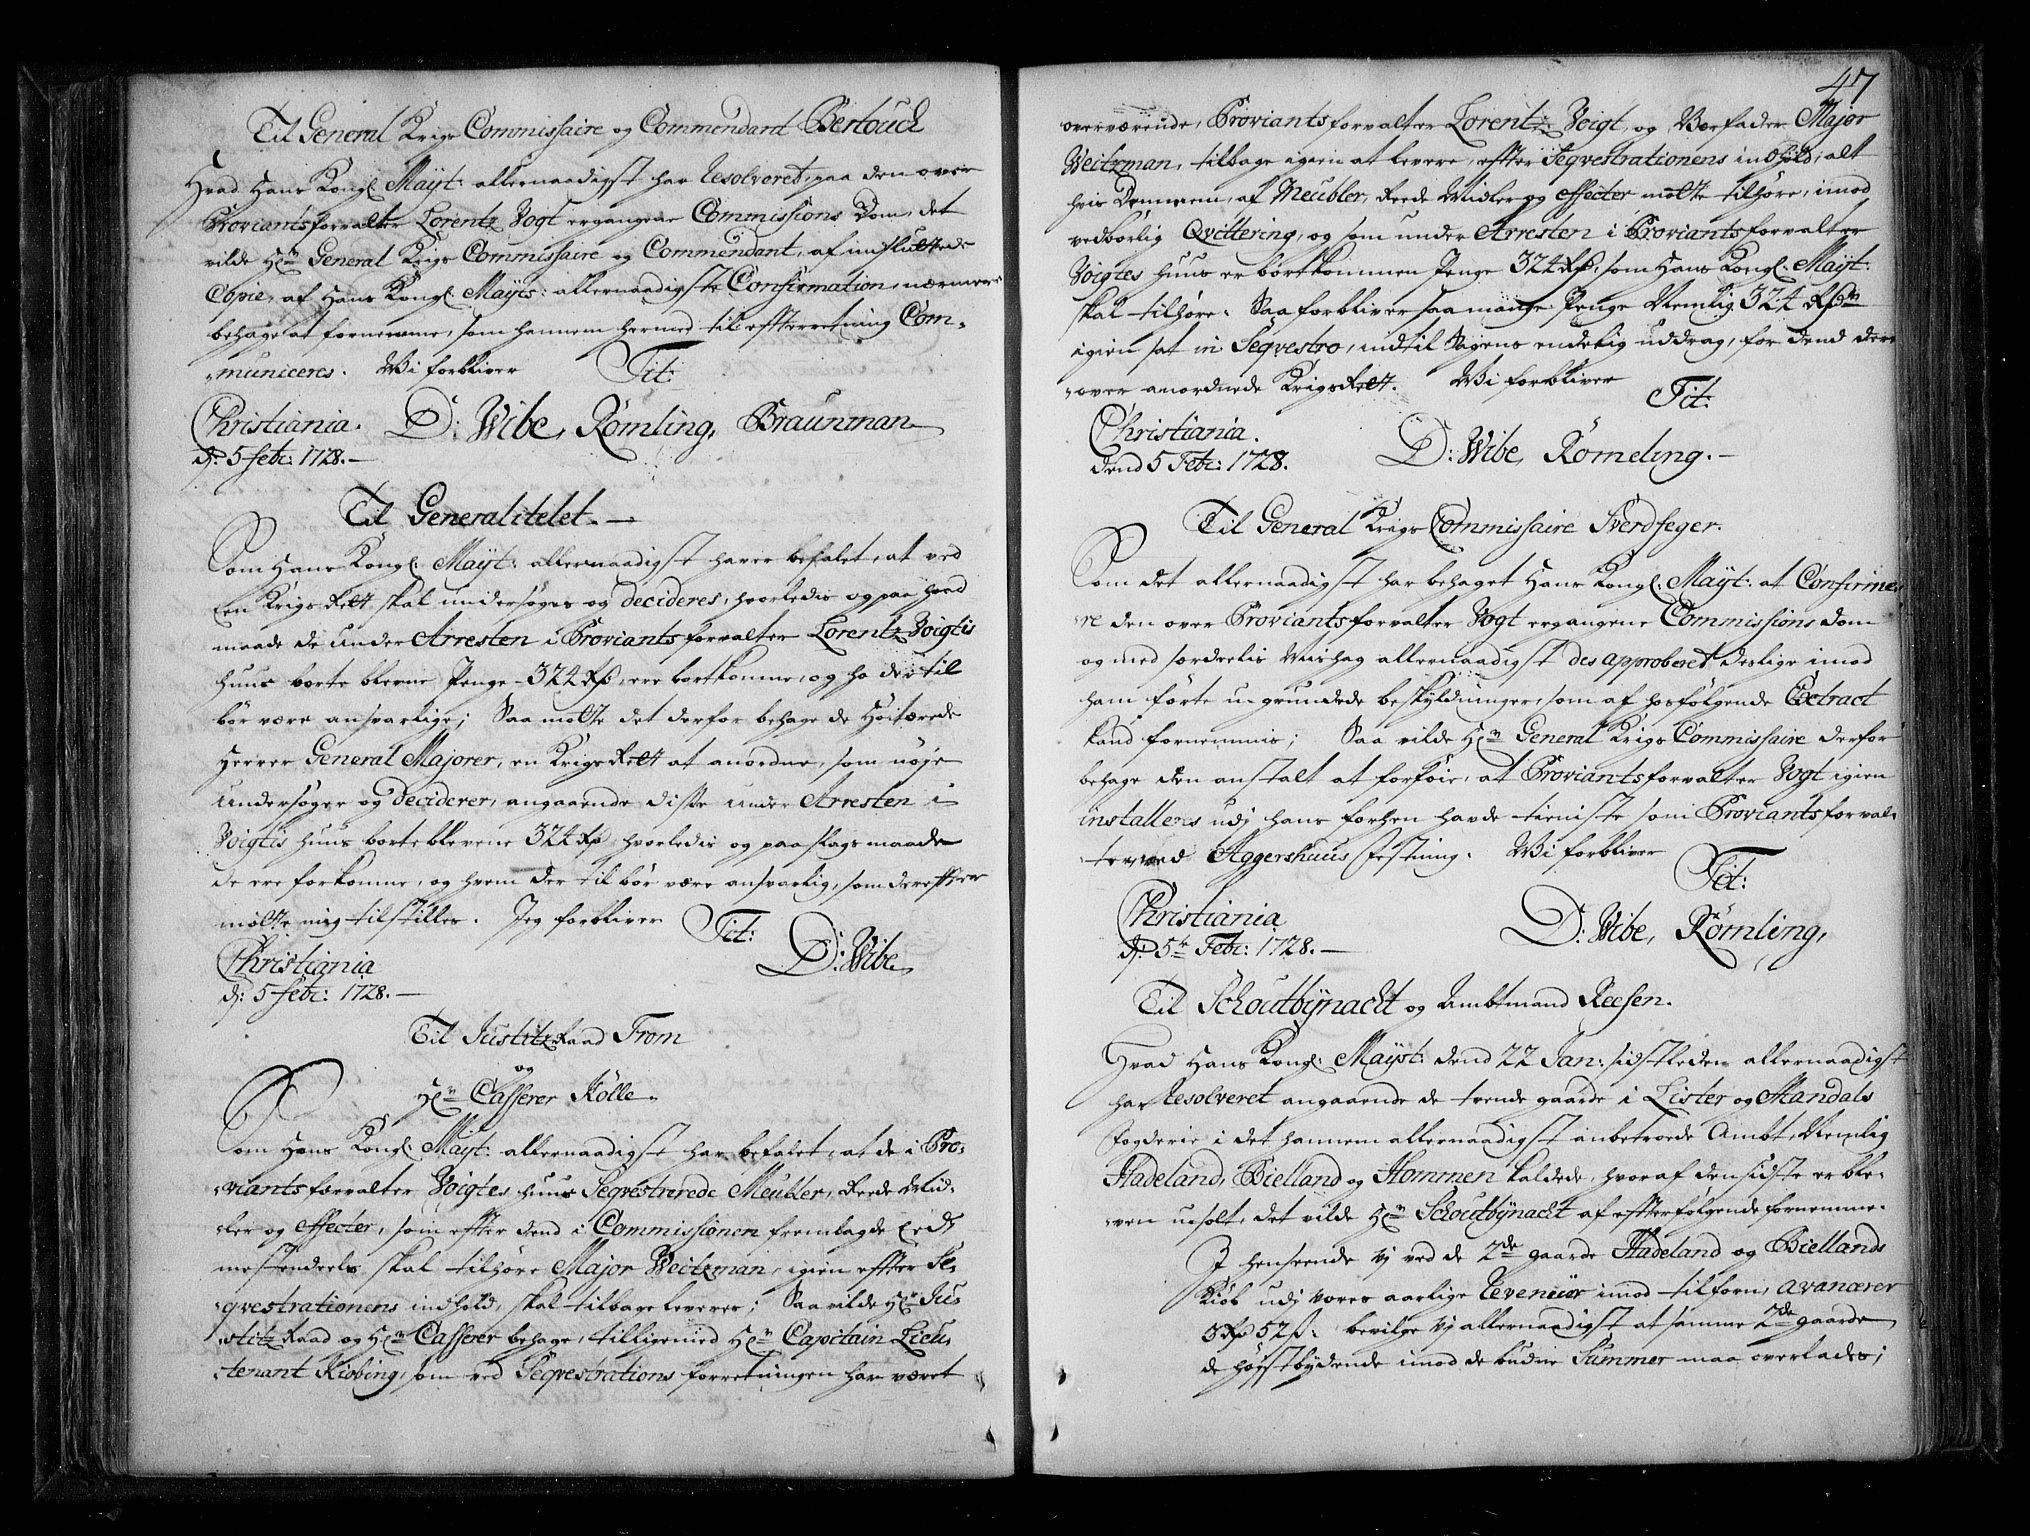 Til General Krigs Commissaire og Commendant Bertouch
Hvad Hans Kongl: Mayt: allernaadigst har Resolveret, paa den over
Proviantsforvalter Lorentz Vogt ergangene Commissions Dom, det
vilde Hr: General Krigs Commissaire og Commendant, af indsluttede
Copie, af Hans Kongl: Mayts: allernaadigste Confirmation, nærmere
behage at fornemme, som hannem hermed til efterretning Com-
-municeres. Wi forbliver Tit:
Christiania.
D: Wibe, Rømling, Braunman
d: 5 Febr: 1728.
Til Generalitetet.
Som Hans Kongl: Mayt: allernaadigst haver befalet, at ved
een Krigs Rett skal undersøges og decideres, hvorledis og paa hvad
maade de under Arresten i Proviantsforvalter Lorentz Voigtis
huus borte blevne Penge 324 Rd, ere bortkomne, og ho der til
bør være ansvarlige; Saa motte det derfor behage de Høitærede
Herrer General Majorer, en Krigs Rett at anordne, som nøje
undersøger og deciderer, angaaende disse under Arresten i
Voigtis huus borteblevne 324 Rd, hvorledis og paa slags maade
de ere forkomne, og hvem der til bør være ansvarlig, som derefter
motte mig tilstilles. Jeg forbliver Tit:
D: Wibe,
Christiania
d: 5 Febr: 1728.
Til Justitz Raad From
og
Hr: Casserer Kölle.
Som Hans Kongl: Mayt: allernaadigst har befalet, at de i Pro-
-viantsforvalter Voigtes huus Seqvestrerede Meubler, Rede Mid-
-ler og effecter, som efter dend i Commissionen fremlagde Eed
mestendeels skal tilhøre Major Weitzman, igien efter Se-
qvestrationens indhold, skal tilbage leveres; Saa vilde Hr: Jus-
-titz Raad og Hr: Casserer behage, tilligemed Hr: Capitain Lieu-
-tenant Kiøbing, som ved Seqvestrations forretningen har været
47
overværende, Proviantsforvalter Lorentz Voigt, og Værfader Major
Weitzman, tilbage igien at levere, efter Seqvestrationens indhold, alt
hvis Dennem, af Meubler, Rede Midler og effecter motte tilhøre, imod
vedbørlig Qvittering, og som under Arresten i Proviantsforvalter
Voigtes huus er bortkommen Penge 324 Rd, som Hans Kongl: Mayt:
skal tilhøre. Saa forbliver saa mange Penge Nemlig 324 Rdr
igien sat in Seqvestro, indtil Sagens endelig uddrag, for dend der
-over anordnede Krigs Rett. Wi forbliver
Tit:
Christiania.
dend 5 Febr: 1728.
D: Wibe, Römeling.
Til General Krigs Commissaire Sverdfeger.
Som det allernaadigst har behaget Hans Kongl: Mayt: at Confirme-
-re den over Proviantsforvalter Vogt ergangene Commissions Dom
og med særdeelis Mishag allernaadigst desapproberet deslige imod
ham førte ugrundede beskyldninger, som af hosfølgende Extract
kand fornemmis; Saa vilde Hr: General Krigs Commissaire derfor
behage den anstalt at forføie, at Proviantsforvalter Vogt igien
installeres udj hans forhen havde tieniste som Proviantsforval-
-ter ved Aggershuus Festning. Wi forbliver
Tit:
Christiania
d: 5te Febr: 1728.
D: Wibe, Römling,
Til Schoutbÿnacht og Ambtmand Reesen.
Hvad Hans Kongl: Mayst: dend 22 Jan: sidstleden allernaadigst
har Resolveret angaaende de trende gaarde i Lister og Mandals
Fogderie i det hannem allernaadigst anbetroede Ambt, Nemlig
Hadeland, Bielland og Hommen kaldede, hvoraf den sidste er ble-
-ven usolt, det vilde Hr: Schoutbÿnacht af efterfølgende fornemme.
I henseende Vj ved de 2de gaarde Hadeland og Biellands
Kiøb udj vores aarlige Revenüer imod tilforn, avancerer
3 Rd 52 s: bevilge Vj allernaadigst at samme 2de gaarde
de høystbydende imod de budne Summer maa overlades;